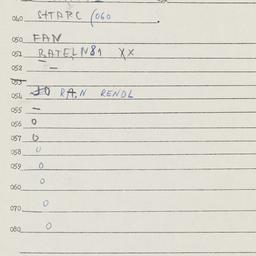 040 SHTARC (060
050 FAN
051 RATELN81 XX
052 –
053
054 RAN RENDL
055 –
056 0
057 0
058 0
059 0
060 0
070 0
080 0